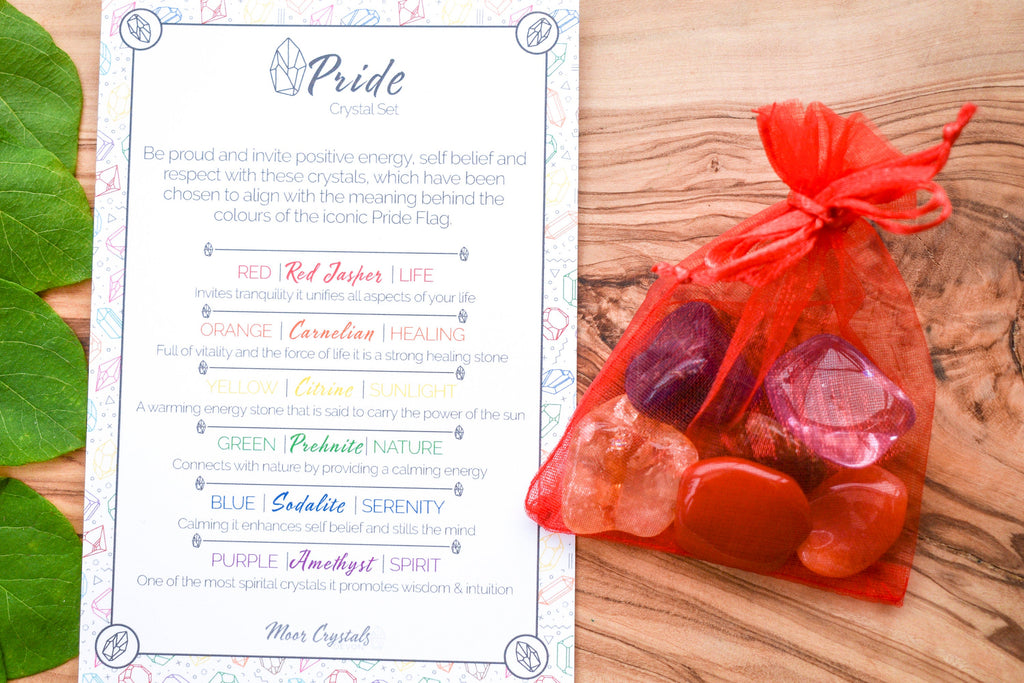 Pride
Crystal Set
Be proud and invite positive energy, self belief and
respect with these crystals, which have been
chosen to align with the meaning behind the
colours of the iconic Pride Flag.
RED | Red Jasper | LIFE
Invites tranquility it unifies all aspects of your life
ORANGE | Carnelian | HEALING
Full of vitality and the force of life it is a strong healing stone
YELLOW | Citrine | SUNLIGHT
A warming energy stone that is said to carry the power of the sun
GREEN | Prehnite | NATURE
Connects with nature by providing a calming energy
BLUE | Sodalite | SERENITY
Calming it enhances self belief and stills the mind
PURPLE | Amethyst | SPIRIT
One of the most spirital crystals it promotes wisdom & intuition
Moor Crystals